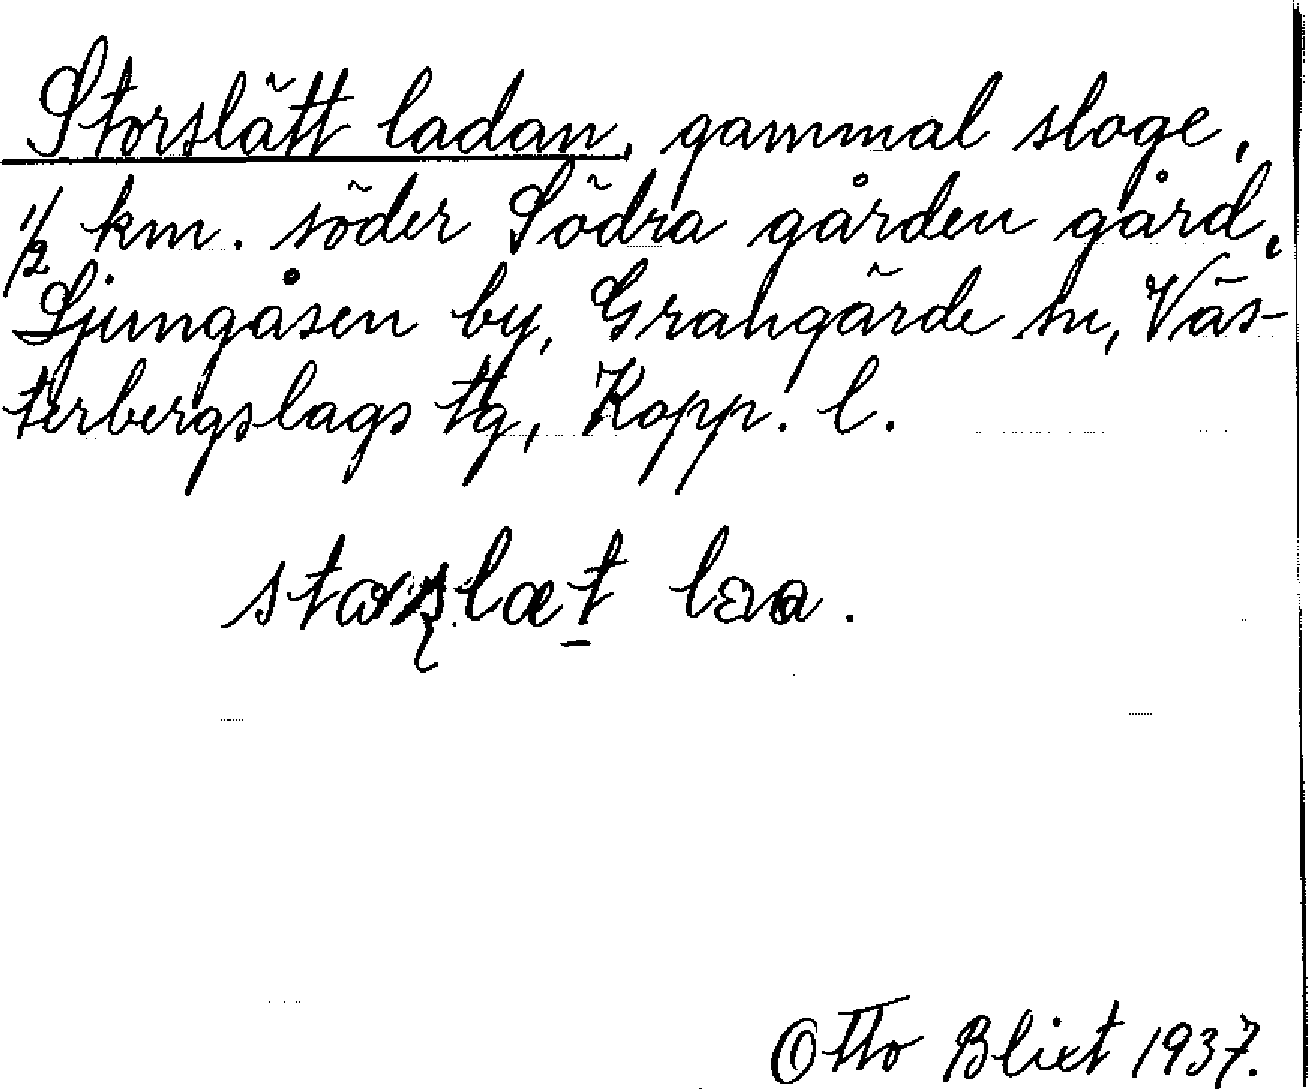 Storslätt ladan, gammal sloge,
1/2 km. söder Södra gården gård,
Ljungåsen by, Grangärde sn, Väs-
terbergslags tg, Kopp. l.
Otto Blixt 1937.